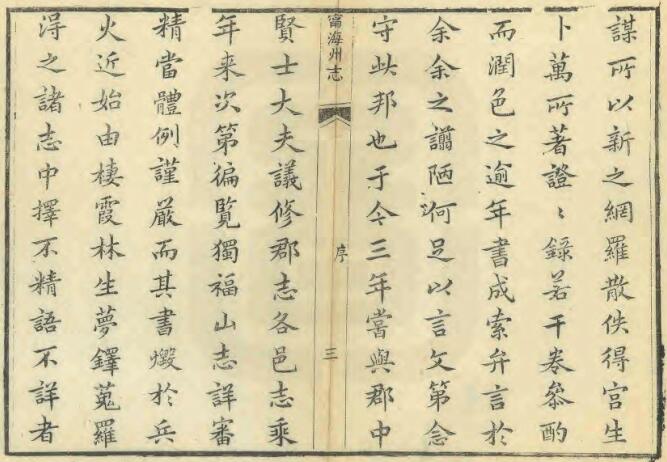 謀所以新之網羅散佚得宫生
卜萬所著證〻錄若干卷叅酌
而潤色之逾年書成索弁言於
余余之譾陋何足以言文第念
守此邦也于今三年嘗與郡中
甯海州志
序
三
賢士大夫議修郡志各邑志乘
年来次第徧覽獨福山志詳審
精當體例謹嚴而其書燬於兵
火近始由棲霞林生夢鐸蒐羅
淂之諸志中擇不精語不詳者